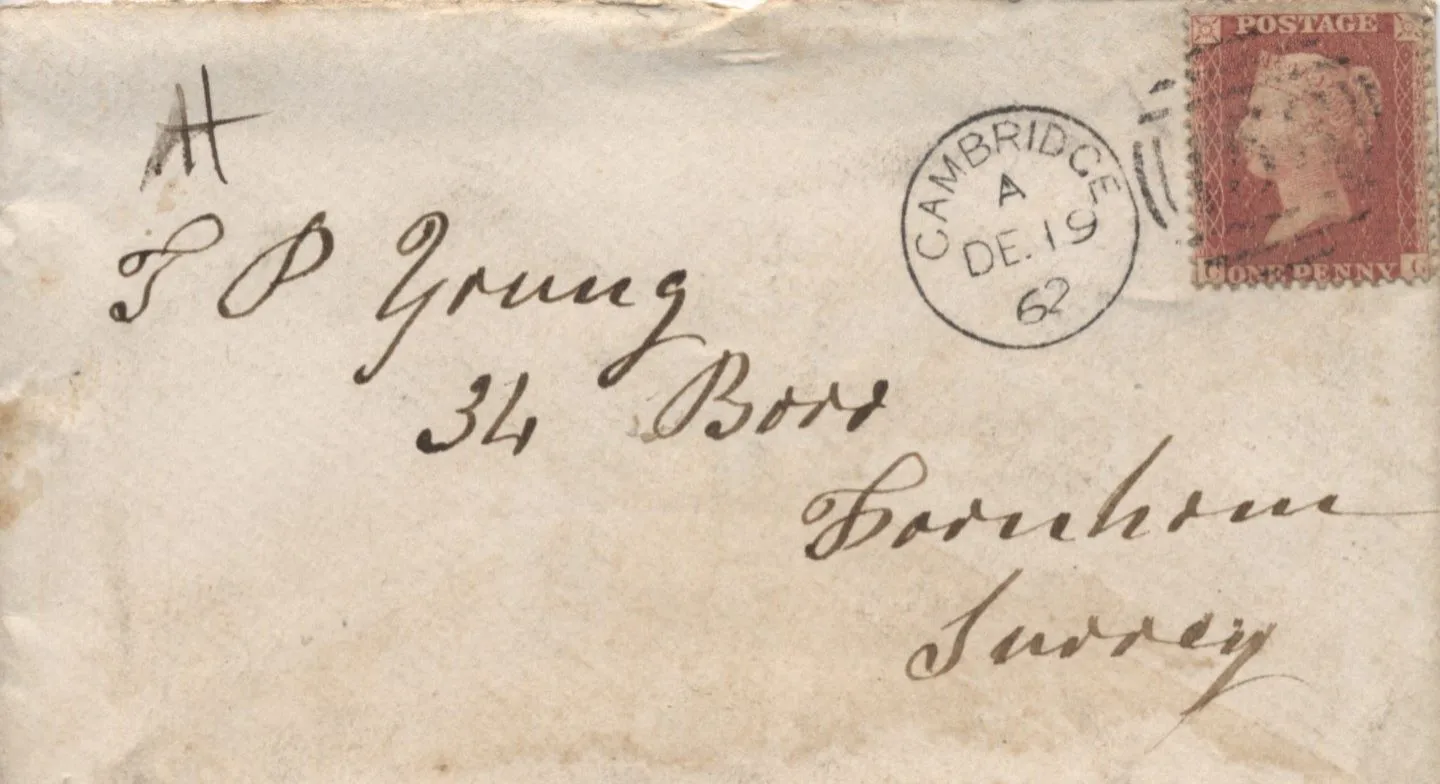 POSTAGE
CAMBRIDGE
A
DE.19
62
C ONE PENNY G
H
T P Young
34
Farnham
Surrey